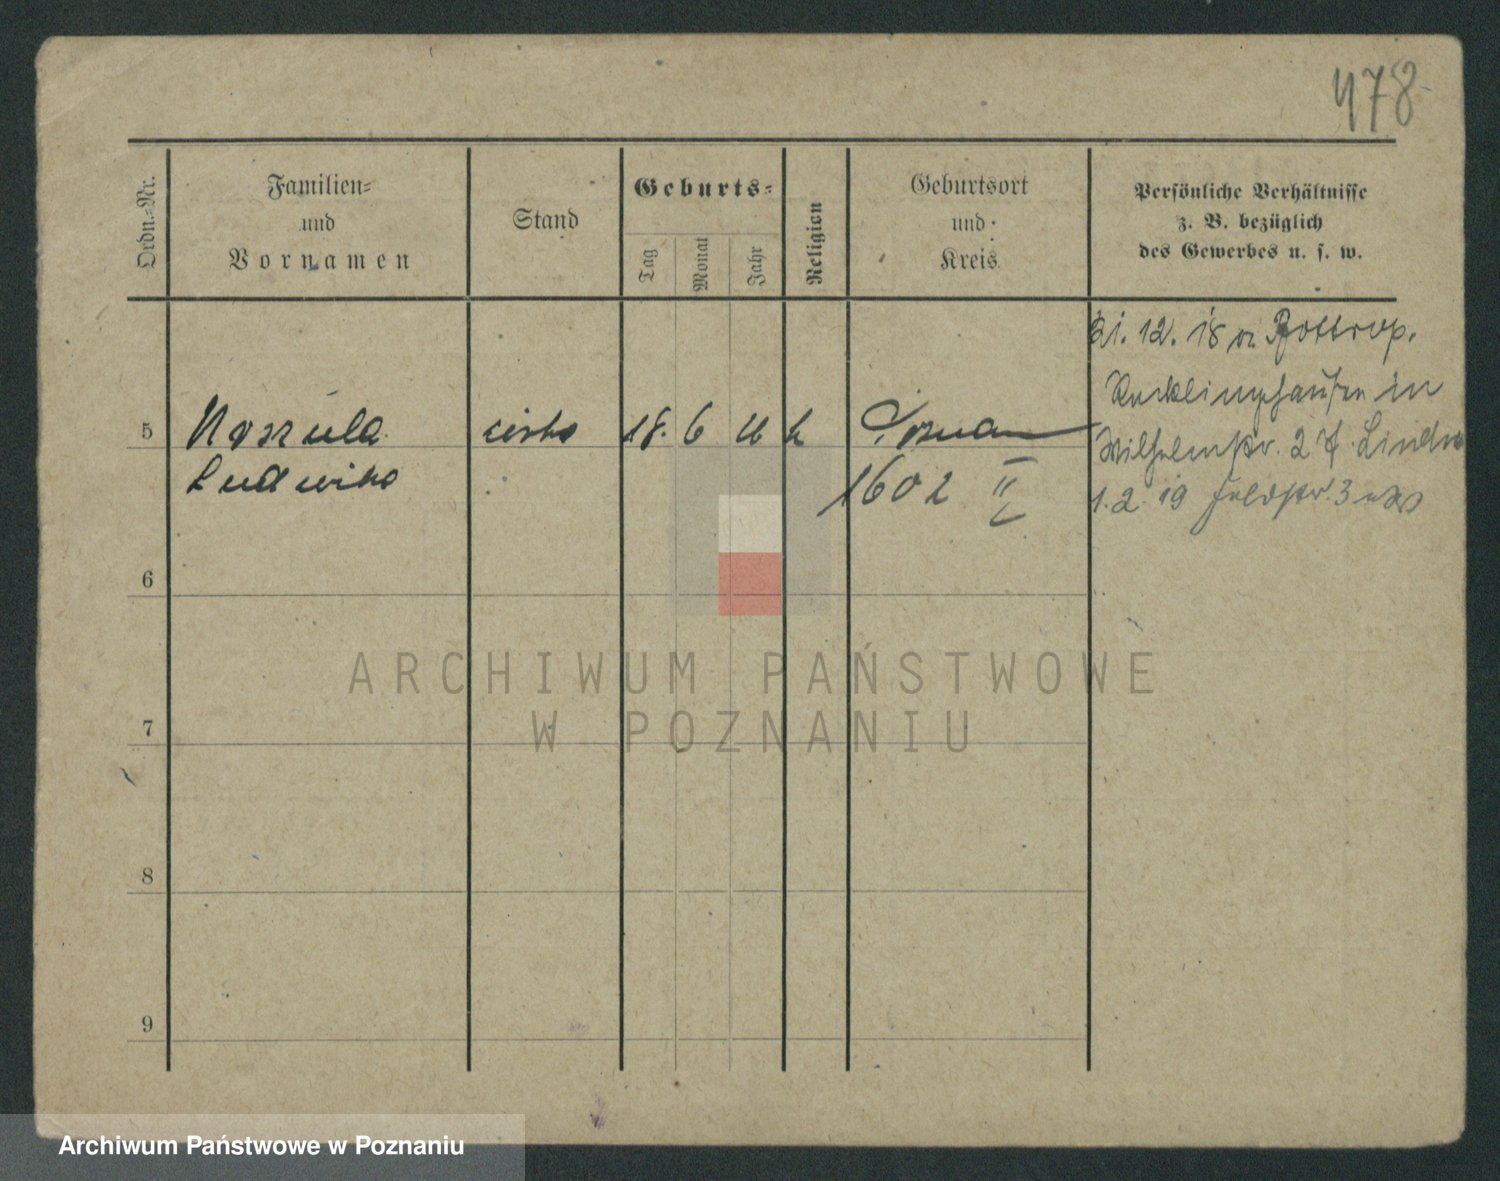 478
Ordn.=Nr.
Familien=
und
Vornamen
Stand
Geburts=
Tag
Monat
Jahr
Religion
Geburtsort
und
Kreis
Persönliche Verhältnisse
z. B. bezüglich
des Gewerbes u. s. w.
21. 12. 18 v. Bottrop.
Recklinghausen in
Wilhelmstr. 27
1. 2. 19 Feldstr. 3
5
córka
18. 6
k
Poznań
Ludwika
1602 II
6
7
8
9
ARCHIWUM PAŃSTWOWE
W POZNANIU
Archiwum Państwowe w Poznaniu